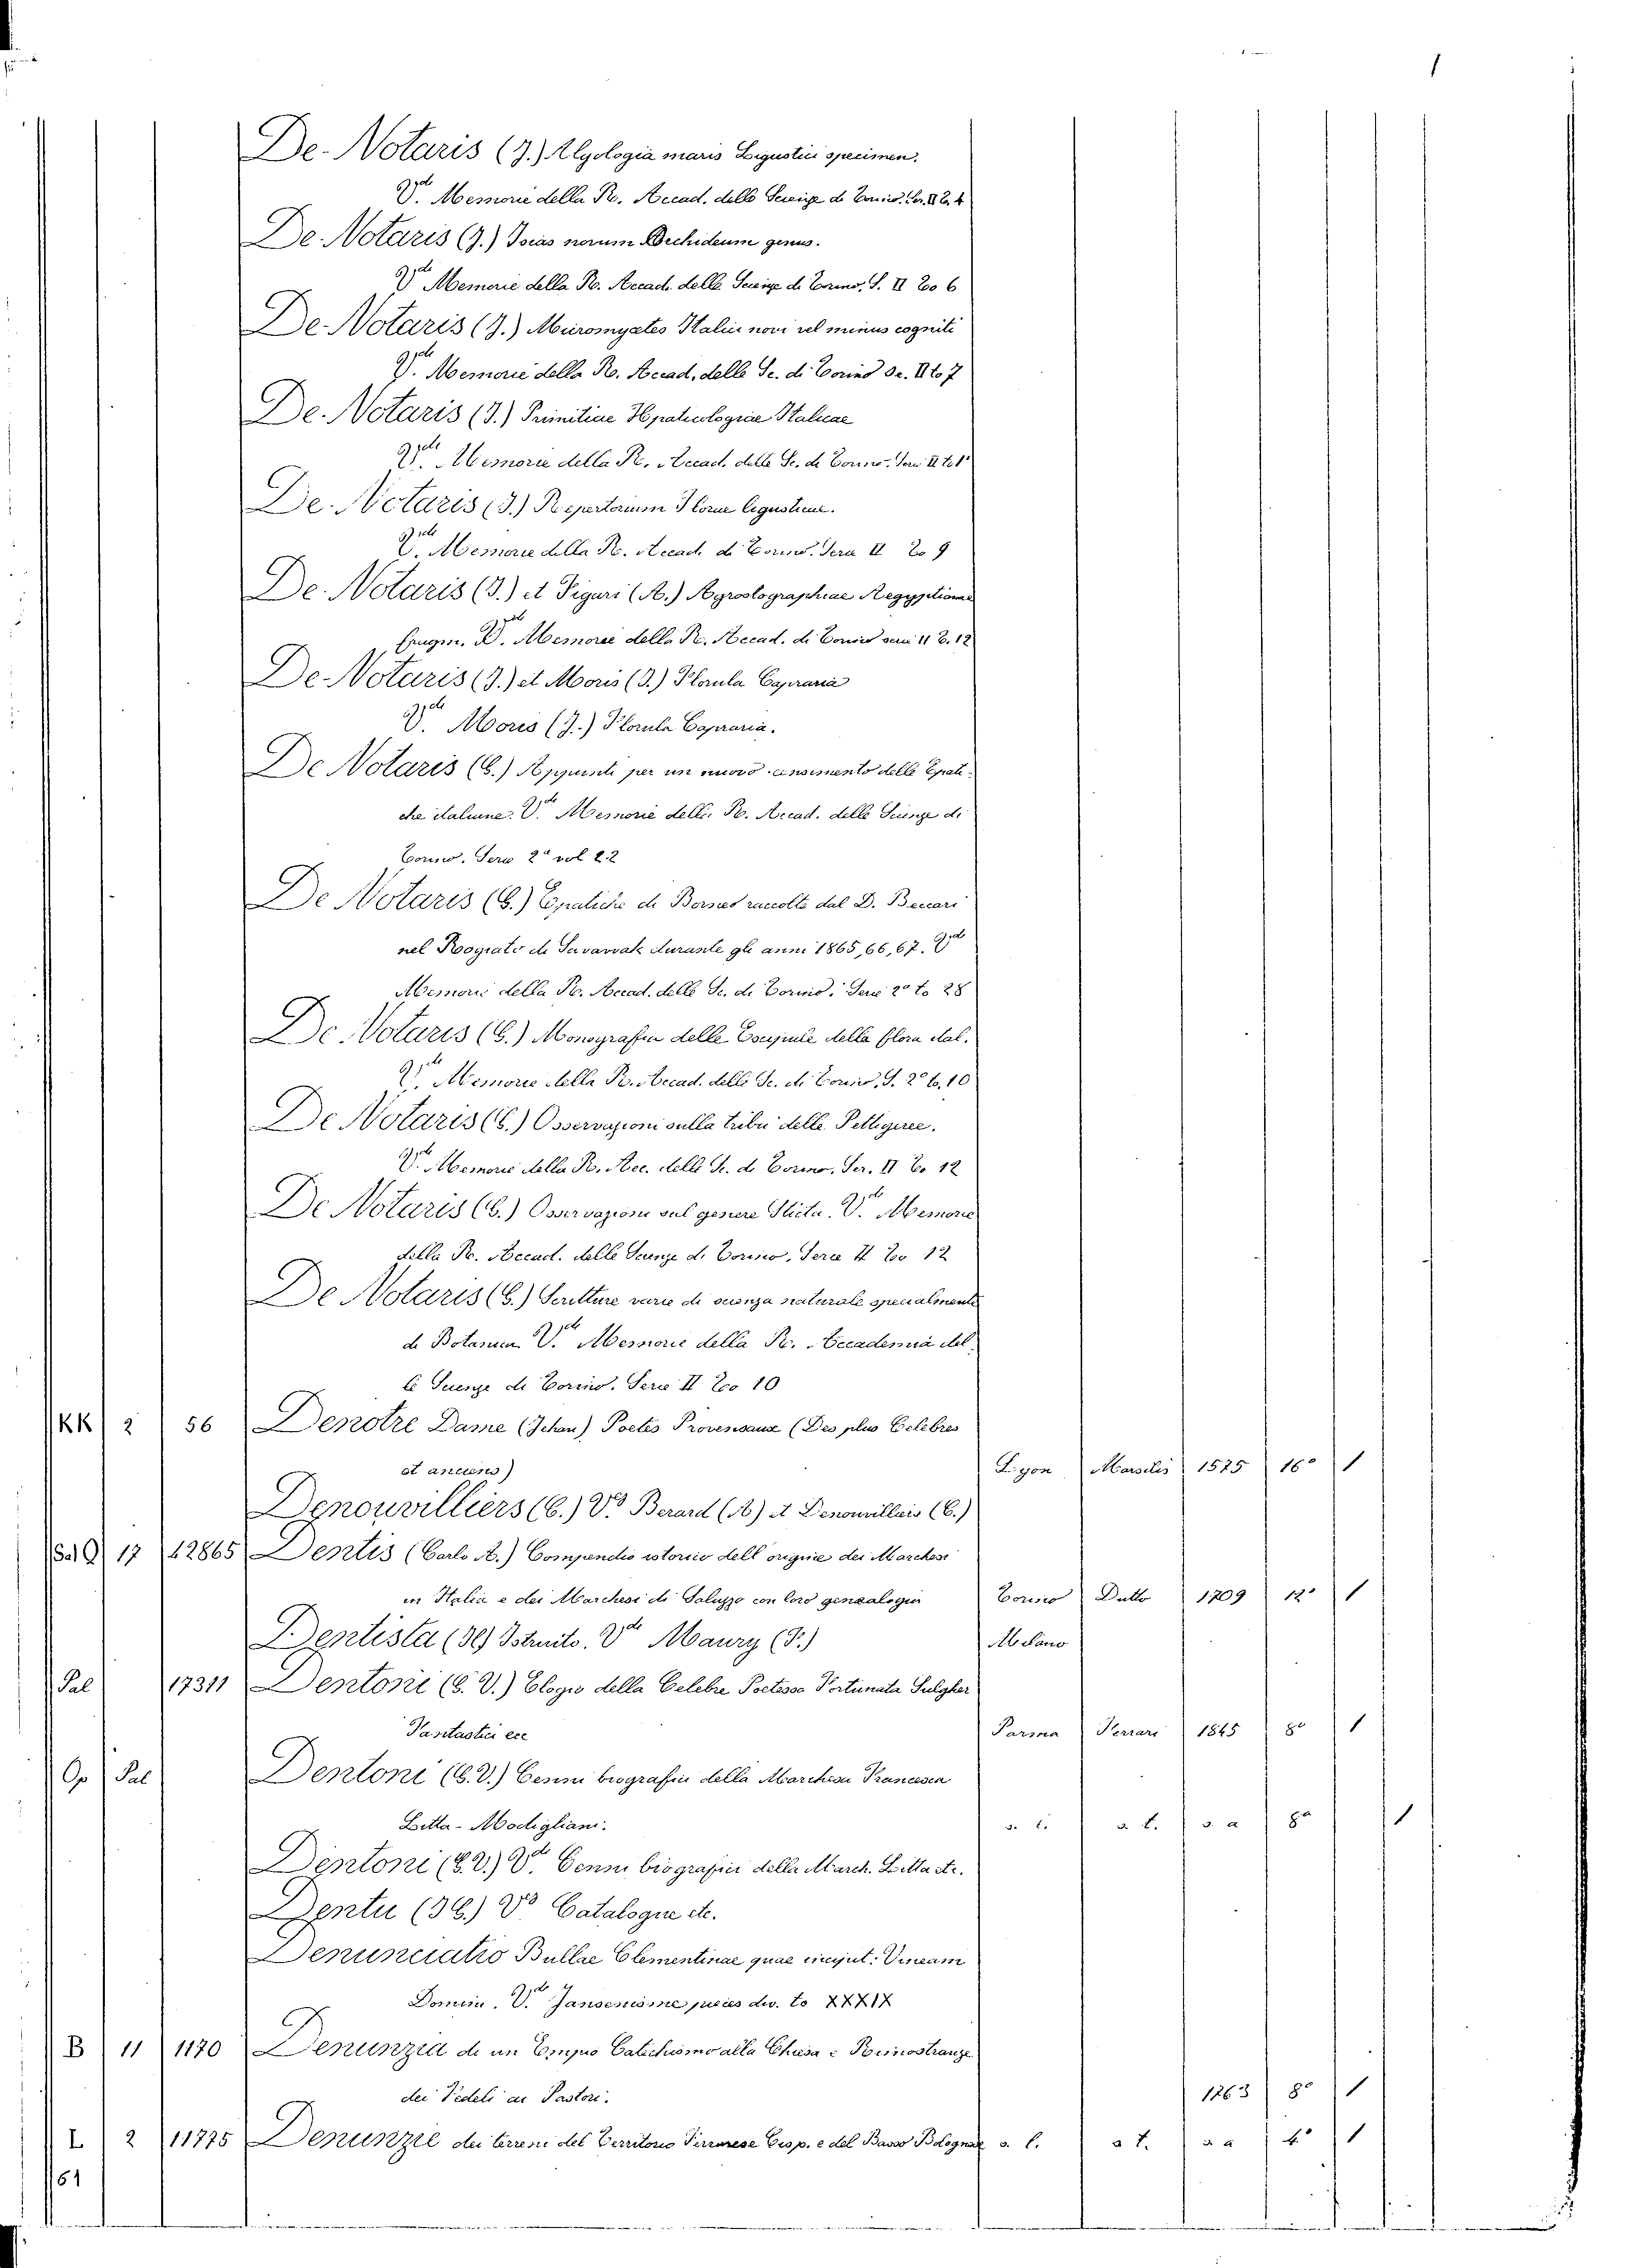 De-Notaris (J.) Algologia maris Ligustici specimen.
Vde Memorie della R. Accad. delle Scienze di Torino. Ser. II To. 4
De-Notaris (J.) Iocas novum Orchideum genus.
Vde Memorie della R. Accad. delle Scienze di Torino. S. II To 6
De-Notaris (J.) Micromycetes Italici novi vel minus cogniti
Vde Memorie della R. Accad. delle Sc. di Torino Se. II to 7
De-Notaris (J.) Primitiae Hepaticologiae Italicae
Vde Memorie della R. Accad. delle Sc. di Torino. Serie II to 1
De-Notaris (J.) Repertorium Florae Ligusticae.
Vde Memorie della R. Accad. di Torino. Serie II To 9
De-Notaris (J.) et Figari (A.) Agrostographiae Aegyptiacae
fragm. Vde Memorie della R. Accad. di Torino serie II T. 12
De-Notaris (J.) et Moris (J.) Florula Capraria
Vde Moris (J.) Florula Capraria.
De Notaris (G.) Appunti per un nuovo censimento delle Epati-
che italiane. Vde Memorie della R. Accad. delle Scienze di
Torino. Serie 2a vol 22
De Notaris (G.) Epatiche di Borneo raccolte dal D. Beccari
nel Ragiato di Sarawak durante gli anni 1865, 66, 67. Vde
Memorie della R. Accad. delle Sc. di Torino. Serie 2a to 28
De-Notaris (G.) Monografia delle della flora ital.
Vde Memorie della R. Accad. delle Sc. di Torino, S. 2a to. 10
De Notaris (G.) Osservazioni sulla tribù delle Peltigeree.
Vde Memorie della R. Acc. delle Sc. di Torino. Ser. II To 12
De Notaris (G.) Osservazioni sul genere Sticta. Vde Memorie
della R. Accad. delle Scienze di Torino, Serie II To 12
De Notaris (G.) Scritture varie di scienza naturale specialmente
di Botanica Vde Memorie della R. Accademia del-
le Scienze di Torino. Serie II To 10
KK 2 56 Denotre Dame (Jehan) Poetes Provensaux (Des plus Celebres
et anciens) Lyon Marsilis 1575 16o 1
Denonvilliers (C.) Vo Berard (A) et Denonvilliers (C.)
Sal Q 17 42865 Dentis (Carlo A.) Compendio istorico dell'origine dei Marchesi
in Italia e dei Marchesi di Saluzzo con loro genealogia Torino Dutto 1709 12o 1
Dentista (Il) Istruito. Vde Maury (F.) Milano
Pal 17311 Dentoni (G. V.) Elogio della Celebre Poetessa Fortunata Sulgher
Fantastici ecc Parma Ferrari 1845 8o 1
Op Pal Dentoni (G. V.) Cenni biografici della Marchesa Francesca
Litta-Modigliani. s. l. s. t. s. a 8o 1
Dentoni (G. V.) Vde Cenni biografici della March. Litta etc.
Dentu (36.) Vo Catalogue etc.
Denunciatio Bullae Clementinae quae incipit: Vineam
Domini. Vde Jansenisme pieces div. to XXXIX
B 11 1170 Denunzia di un Empio Catechismo alla Chiesa e Rimostranze
dei Fedeli ai Pastori. 1763 8o 1
L 2 11775 Denunzie dei terreni del Territorio Ferrarese Cisp. e del Basso Bolognese s. l. s t. s a 4o 1
61
1